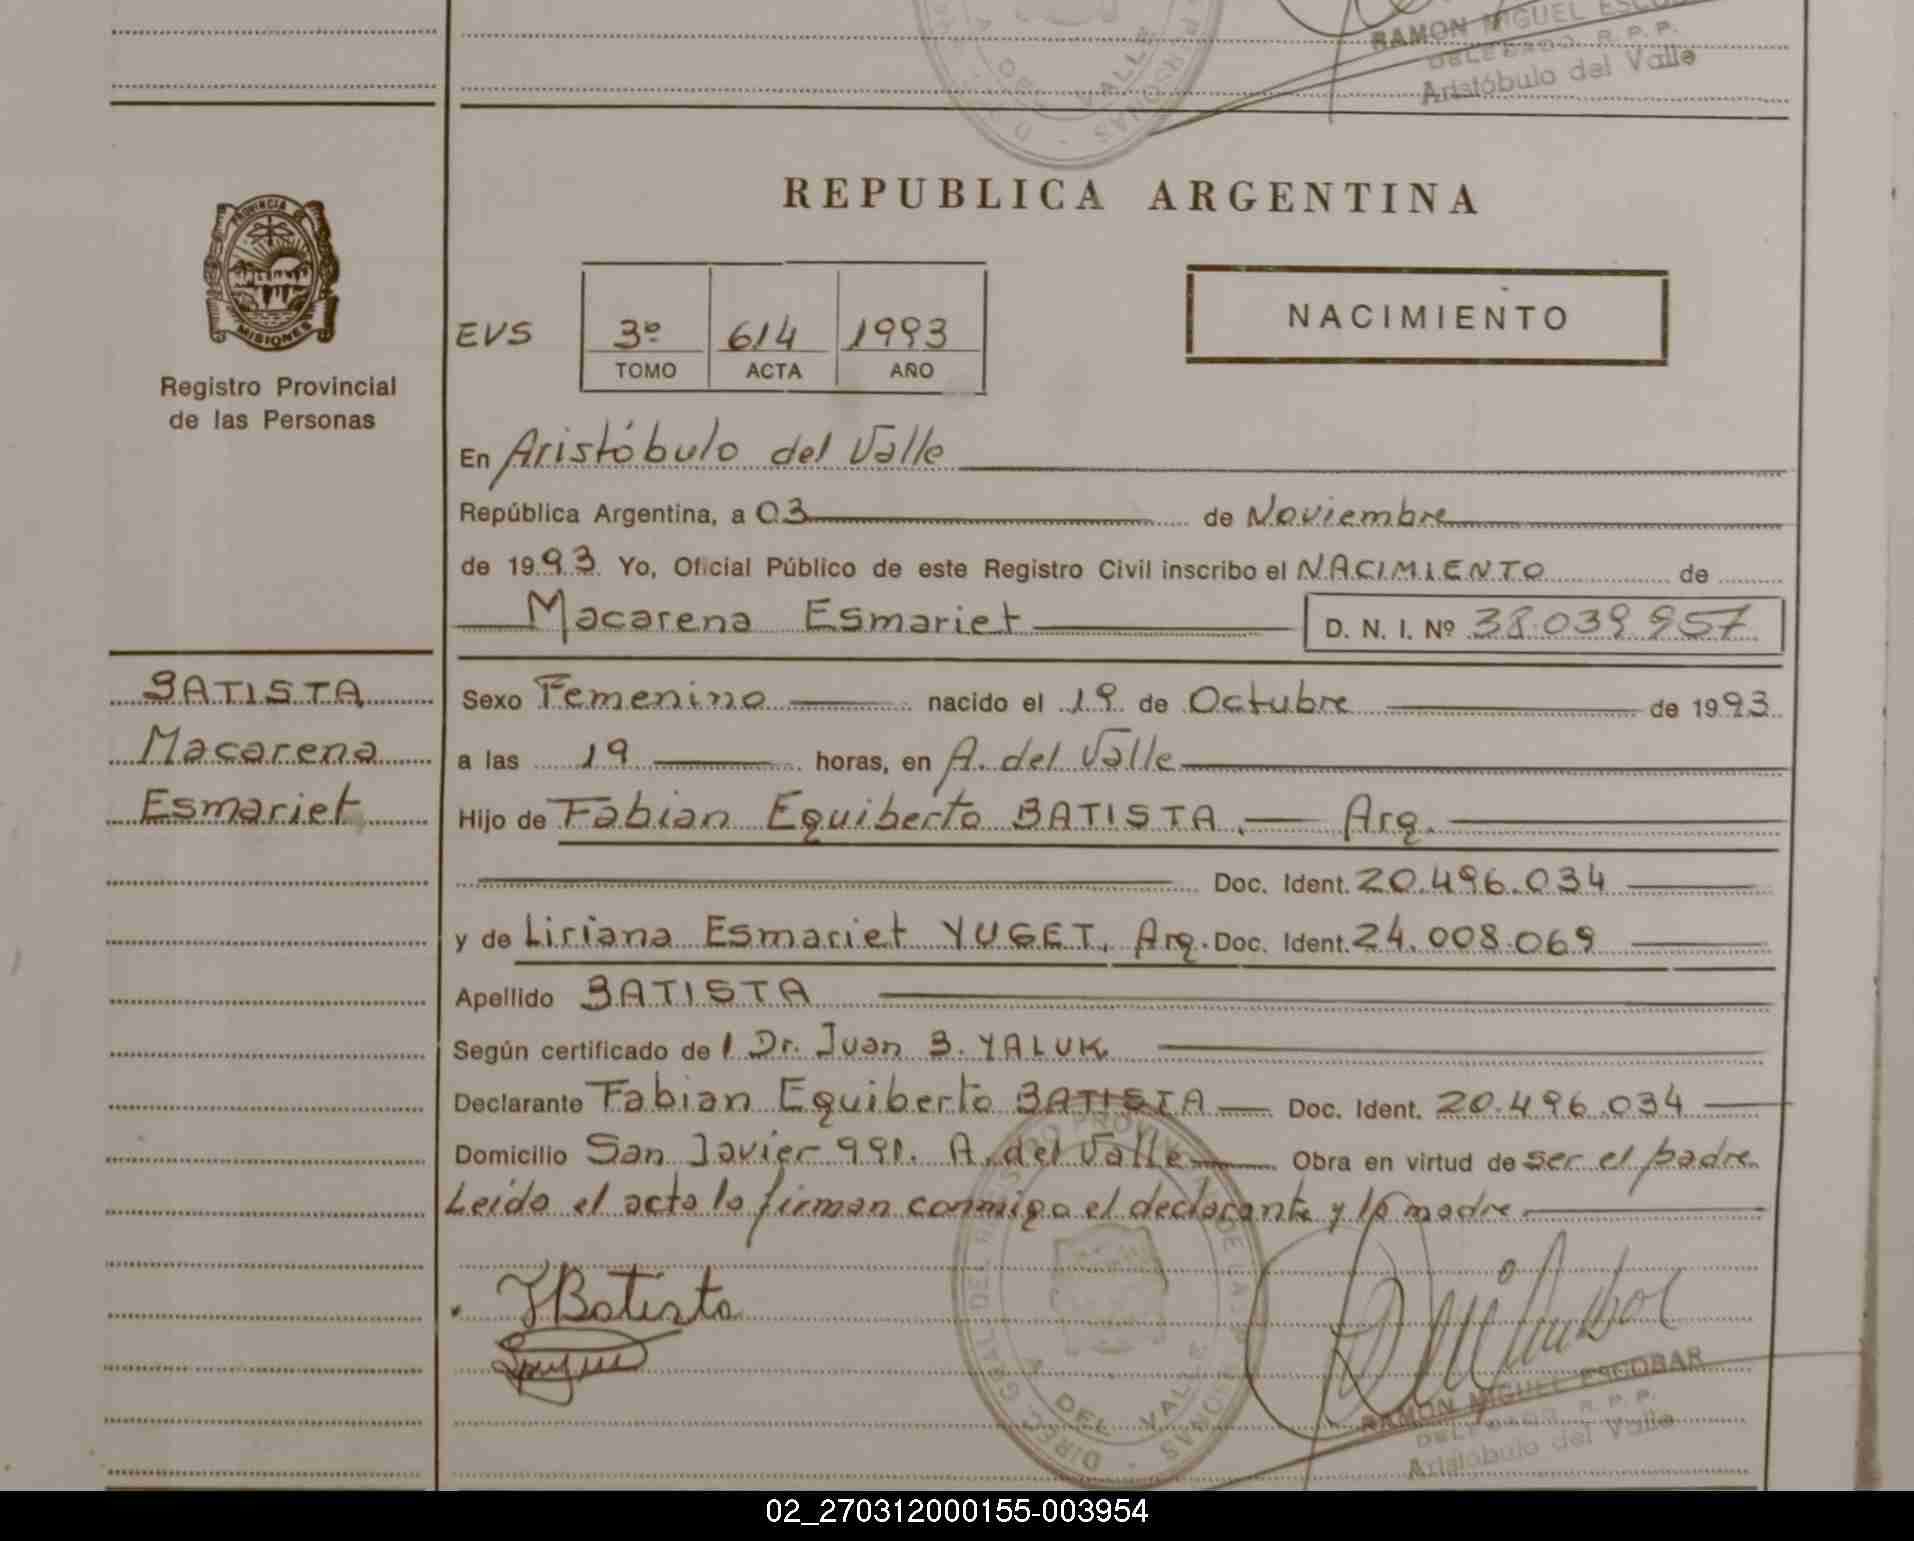 RAMON MIGUEL
DELEGADO R. P. P.
Aristóbulo del Valle
PROVINCIA DE
MISIONES
Registro Provincial
de las Personas
REPUBLICA ARGENTINA
EVS 3º 614 1993
TOMO ACTA AÑO
NACIMIENTO
En Aristóbulo del Valle
República Argentina, a 03 de Noviembre
de 1993 Yo, Oficial Público de este Registro Civil inscribo el NACIMIENTO de
Macarena Esmariet D. N. I. Nº 38.039.957
BATISTA
Macarena
Esmariet
Sexo Femenino nacido el 19 de Octubre de 1993
a las 19 horas, en A. del Valle
Hijo de Fabian Equiberto BATISTA. Arg.
Doc. Ident. 20.496.034
y de Liriana Esmariet YUGET, Arg. Doc. Ident. 24.008.069
Apellido BATISTA
Según certificado de l Dr. Juan B. YALUK
Declarante Fabian Equiberto BATISTA Doc. Ident. 20.496.034
Domicilio San Javier 991. A. del Valle Obra en virtud de ser el padre
Leído el acta la firman conmigo el declarante y la madre
FBatista
RAMON MIGUEL ESCOBAR
DELEGADO R. P. P.
Aristóbulo del Valle
02_270312000155-003954